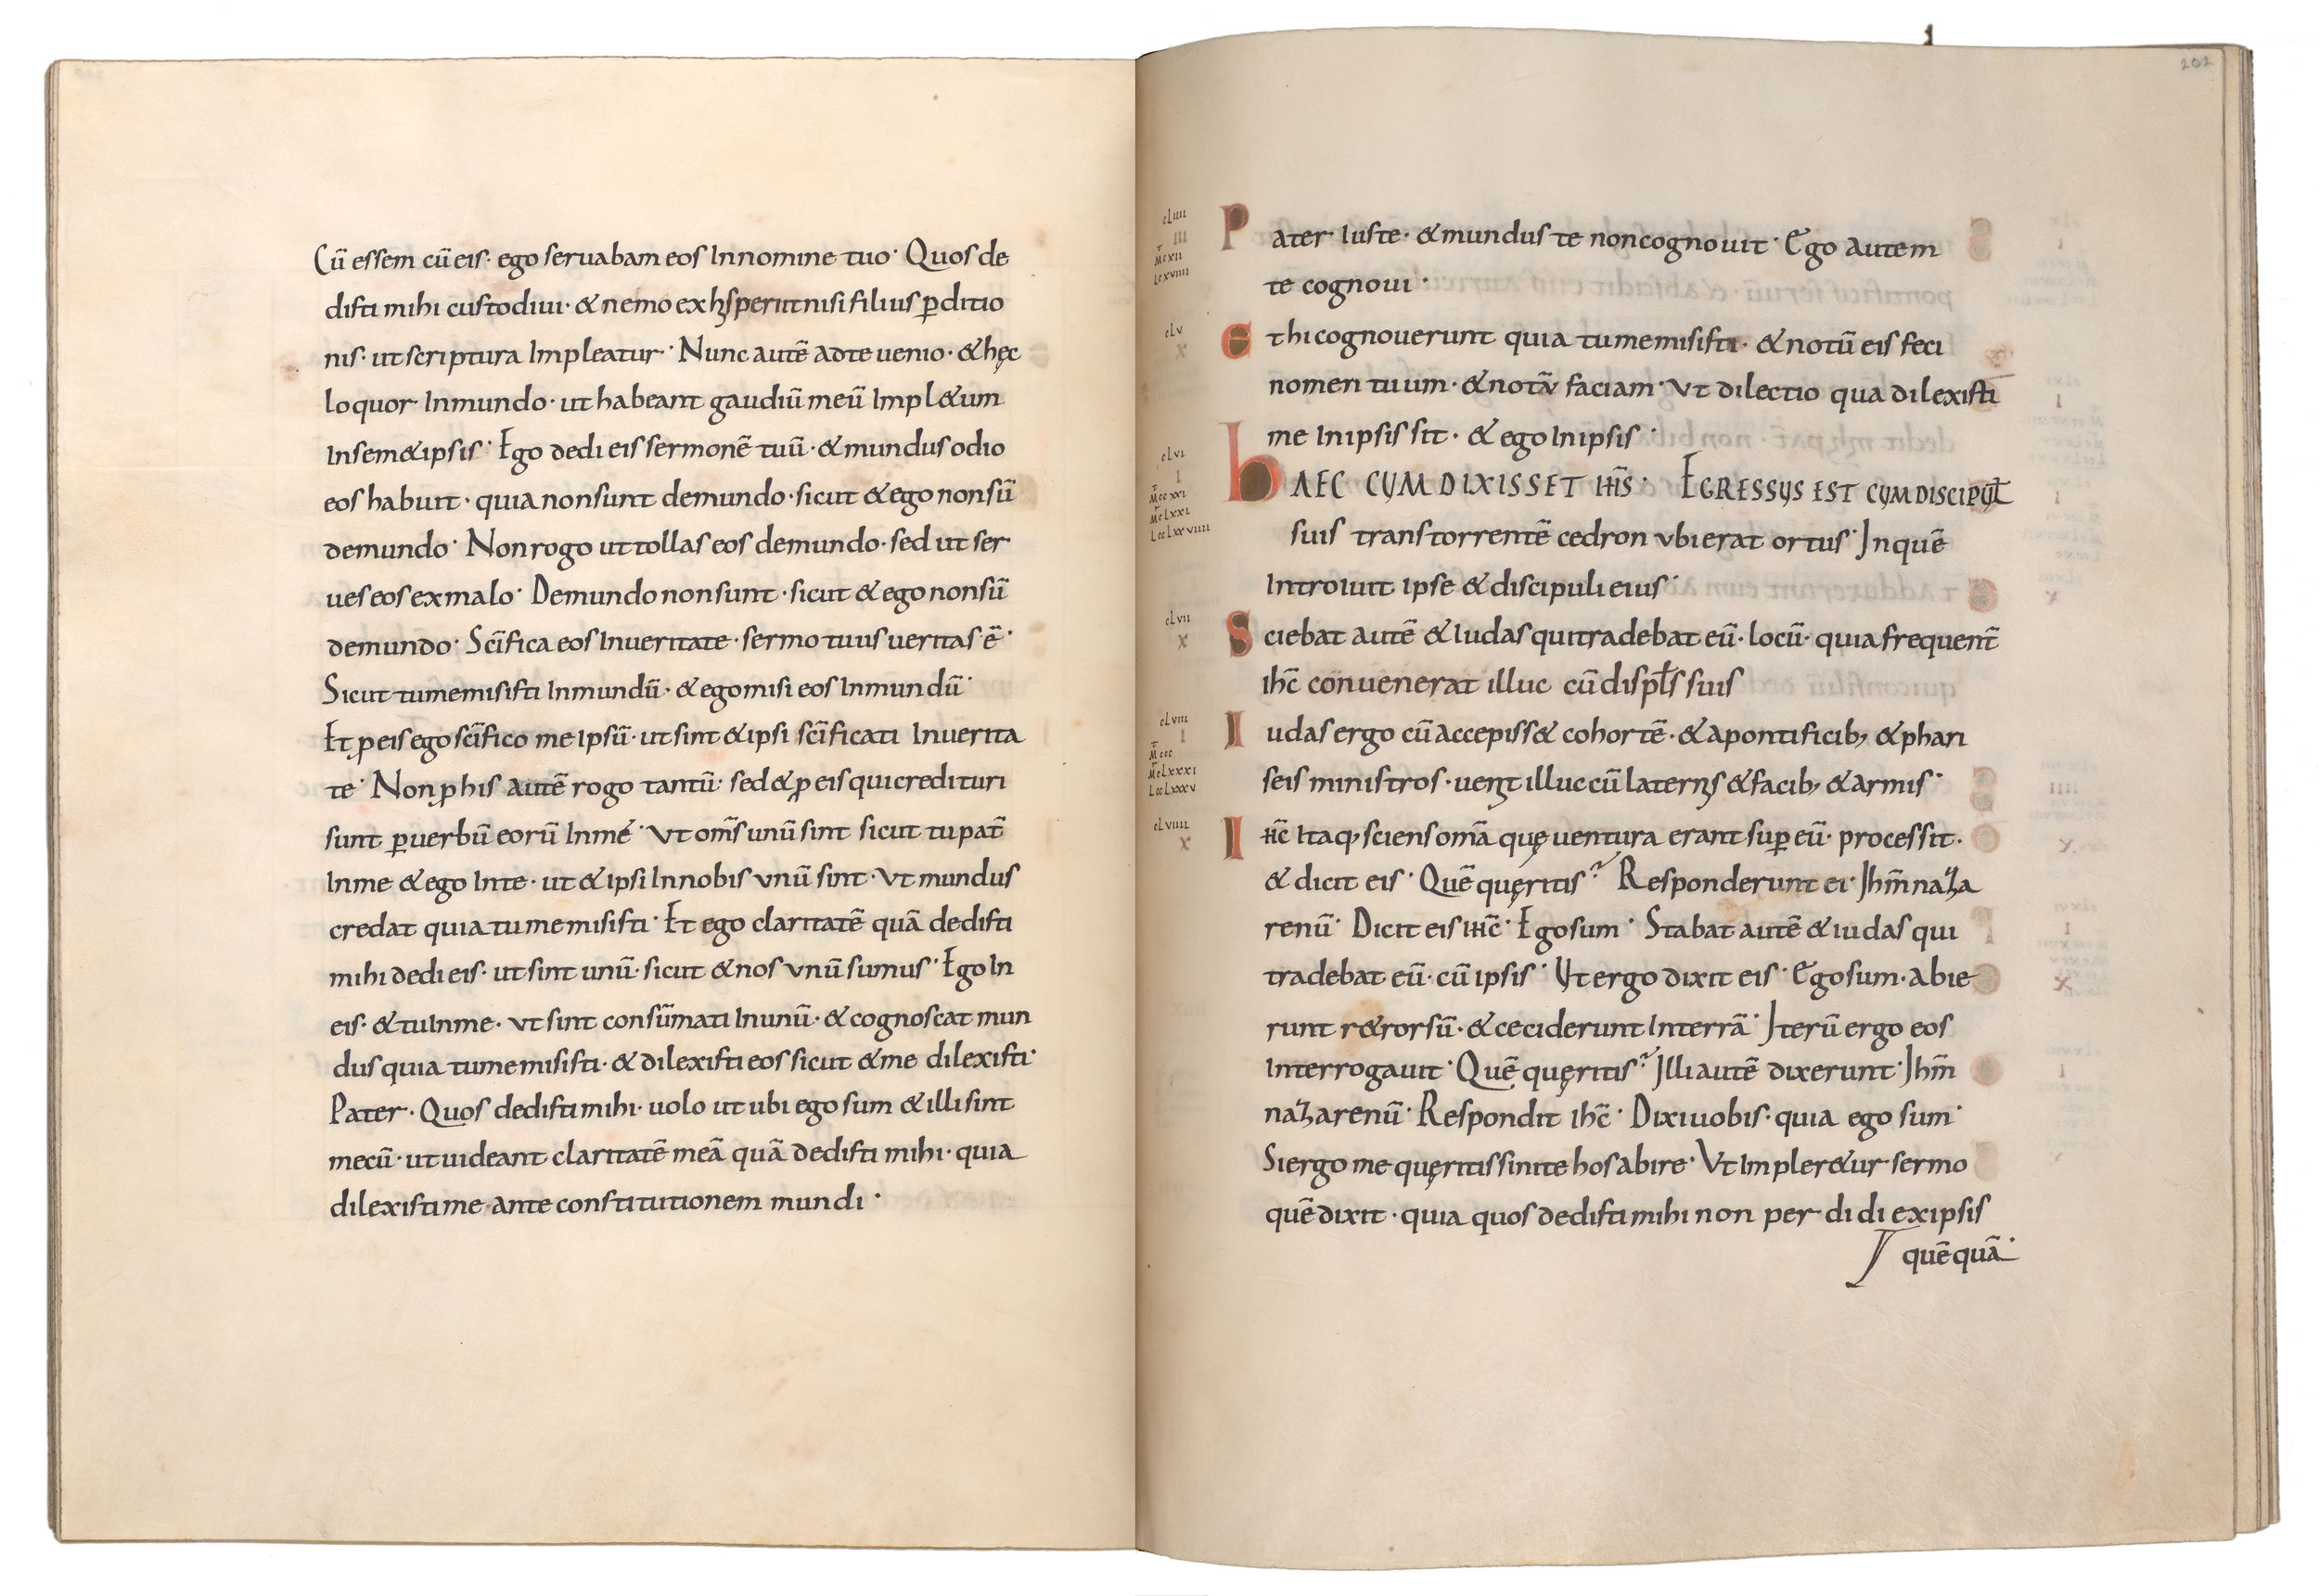 Cū essem cū eis· ego seruabam eos Innomine tuo· Quos de
disti mihi custodiui· & nemo ex hįs periit nisi filius p̱ditio
nis· ut scriptura Impleatur· Nunc autē adte uenio· & hęc
loquor Inmundo· ut habeant gaudiū meū Impl&um
Insem&ipsis· Ego dedi eis sermonē tuū· & mundus odio
eos habuit· quia non sunt demundo· sicut & ego non sū
demundo· Non rogo ut tollas eos demundo· sed ut ser
ues eos exmalo· Demundo non sunt· sicut & ego non sū
demundo· Sc̄ifica eos Inueritate· sermo tuus ueritas ē·
Sicut tu me misisti Inmundū· & ego misi eos Inmundū·
Et ꝓ eis ego sc̄ifico me Ipsū· ut sint & ipsi sc̄ificati Inuerita
te· Non ꝓ his autē rogo tantū· sed & ꝓ eis qui credituri
sunt ꝑ uerbū eorū Inmé· Vt om̄s unū sint sicut tu pat̄
Inme & ego Inte· ut & ipsi Innobis vnū sint· Vt mundus
credat quia tu me misisti· Et ego claritatē quā dedisti
mihi dedi eis· ut sint unū· sicut & nos vnū sumus· Ego In
eis· & tu Inme· vt sint consūmati Inunū· & cognoscat mun
dus quia tu me misisti· & dilexisti eos sicut & me dilexisti·
Pater· Quos dedisti mihi· uolo ut ubi ego sum & illi sint
mecū· ut uideant claritatē meā quā dedisti mihi· quia
dilexisti me ante constitutionem mundi·
202
cLIIII
III
Pater Iuste· & mundus te non cognouit· Ego autem
te cognoui·
cLV
X
Et hi cognouerunt quia tu me misisti· & notū eis feci
nomen tuum· & notū faciam· Vt dilectio qua dilexisti
me In ipsis sit· & ego In ipsis·
cLVI
I
MccXXI
McLXXI
LccLXXVIIII
hAEC CUM DIXISSET IHS̄· EGRESSUS EST CUM DISCIPUL̄
suis trans torrentē cedron vbi erat ortus· In quē
Introiuit ipse & discipuli eius·
cLVII
X
Sciebat autē & Iudas qui tradebat eū· locū· quia frequent̄
ihc̄ conuenerat illuc cū disipl̄s suis
cLVIII
I
Mccc
McLXXXI
LccLXXXV
Iudas ergo cū accepiss& cohortē· & apontificib; & phari
seis ministros· uenįt illuc cū laternįs & facib; & armis·
cLVIIII
X
Ihc̄ Itaq; sciens om̄a quę uentura erant suꝑ eū· processit·
& dicit eis· Quē quęritis? Responderunt ei· Ihm̄ naza
renū· Dicit eis ihc̄· Ego sum· Stabat autē & iudas qui
tradebat eū· cū ipsis· Vt ergo dixit eis· Ego sum· abie
runt r&rorsū· & ceciderunt Interrā· Iterū ergo eos
Interrogauit· Quē quęritis? Illi autē dixerunt· Ihm̄
nazarenū· Respondit ihc̄· Dixi uobis· quia ego sum·
Si ergo me quęritis sinite hos abire· Vt Impler&ur sermo
quē dixit· quia quos dedisti mihi non perdidi ex ipsis
quēquā·